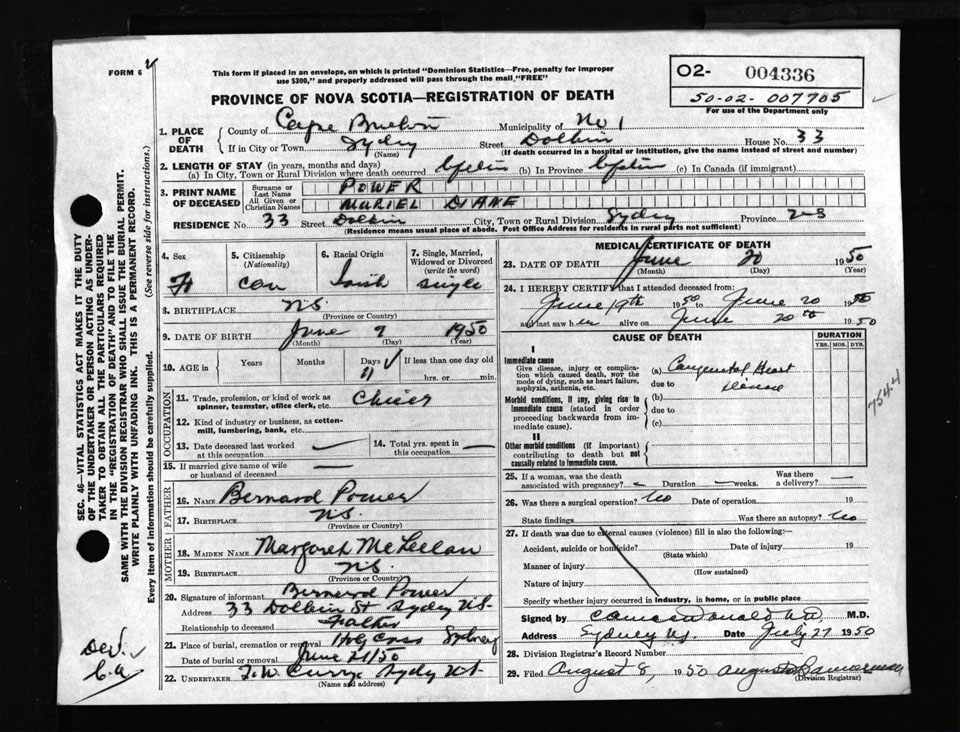 FORM 6
This form if placed in an envelope, on which is printed "Dominion Statistics—Free, penalty for improper
use $300," and properly addressed will pass through the mail "FREE"
PROVINCE OF NOVA SCOTIA—REGISTRATION OF DEATH
O2- 004336
50-02-007705
For use of the Department only
1. PLACE OF DEATH
County of Cape Breton Municipality of No 1
If in City or Town Sydney Street Dolbin House No. 33
(Name) (If death occurred in a hospital or institution, give the name instead of street and number)
2. LENGTH OF STAY (in years, months and days)
(a) In City, Town or Rural Division where death occurred (b) In Province (c) In Canada (if immigrant)
3. PRINT NAME OF DECEASED
Surname or Last Name POWER
All Given or Christian Names MURIEL DIANE
RESIDENCE No. 33 Street Dolbin City, Town or Rural Division Sydney Province NS
(Residence means usual place of abode. Post Office Address for residents in rural parts not sufficient)
4. Sex F
5. Citizenship (Nationality) Can
6. Racial Origin Irish
7. Single, Married, Widowed or Divorced (write the word) single
8. BIRTHPLACE N.S.
(Province or Country)
9. DATE OF BIRTH June 9 1950
(Month) (Day) (Year)
10. AGE in Years Months Days 11 If less than one day old
hrs. or min.
OCCUPATION
11. Trade, profession, or kind of work as
spinner, teamster, office clerk, etc.
12. Kind of industry or business, as cotton-
mill, lumbering, bank, etc.
13. Date deceased last worked
at this occupation —
14. Total yrs. spent in
this occupation —
15. If married give name of wife
or husband of deceased —
FATHER
16. NAME Bernard Power
17. BIRTHPLACE N.S.
(Province or Country)
MOTHER
18. MAIDEN NAME Margaret McLellan
19. BIRTHPLACE N.S.
(Province or Country)
20. Signature of informant Bernard Power
Address 33 Dolbin St Sydney NS.
Relationship to deceased Father
21. Place of burial, cremation or removal Holy Cross Sydney
Date of burial or removal June 21/50
22. UNDERTAKER T.W. Curry Sydney NS.
(Name and address)
MEDICAL CERTIFICATE OF DEATH
23. DATE OF DEATH June 20 1950
(Month) (Day) (Year)
24. I HEREBY CERTIFY that I attended deceased from:
June 19th 1950 to June 20 1950
and last saw her alive on June 20th 1950
CAUSE OF DEATH
DURATION
YRS. MOS. DYS.
I
Immediate cause
Give disease, injury or complica-
tion which caused death, NOT the
mode of dying, such as heart failure,
asphyxia, asthenia, etc.
(a) Congenital Heart
due to Disease
Morbid conditions, if any, giving rise to
immediate cause (stated in order
proceeding backwards from im-
mediate cause).
(b)
due to
(c)
II
Other morbid conditions (if important)
contributing to death but not
causally related to immediate cause.
7544
25. If a woman, was the death
associated with pregnancy? — Duration — weeks. Was there
a delivery? —
26. Was there a surgical operation? No Date of operation 19
State findings Was there an autopsy? No
27. If death was due to external causes (violence) fill in also the following:—
Accident, suicide or homicide? Date of injury 19
(State which)
Manner of injury
(How sustained)
Nature of injury
Specify whether injury occurred in industry, in home, or in public place
Signed by M.D.
Address Sydney N.S. Date July 27 1950
28. Division Registrar's Record Number
29. Filed August 8, 1950
(Division Registrar)
SEC. 46—VITAL STATISTICS ACT MAKES IT THE DUTY
OF THE UNDERTAKER OR PERSON ACTING AS UNDER-
TAKER TO OBTAIN ALL THE PARTICULARS REQUIRED
IN THE "REGISTRATION OF DEATH" AND TO FILE THE
SAME WITH THE DIVISION REGISTRAR WHO SHALL ISSUE THE BURIAL PERMIT.
WRITE PLAINLY WITH UNFADING INK. THIS IS A PERMANENT RECORD.
Every item of information should be carefully supplied. (See reverse side for instructions.)